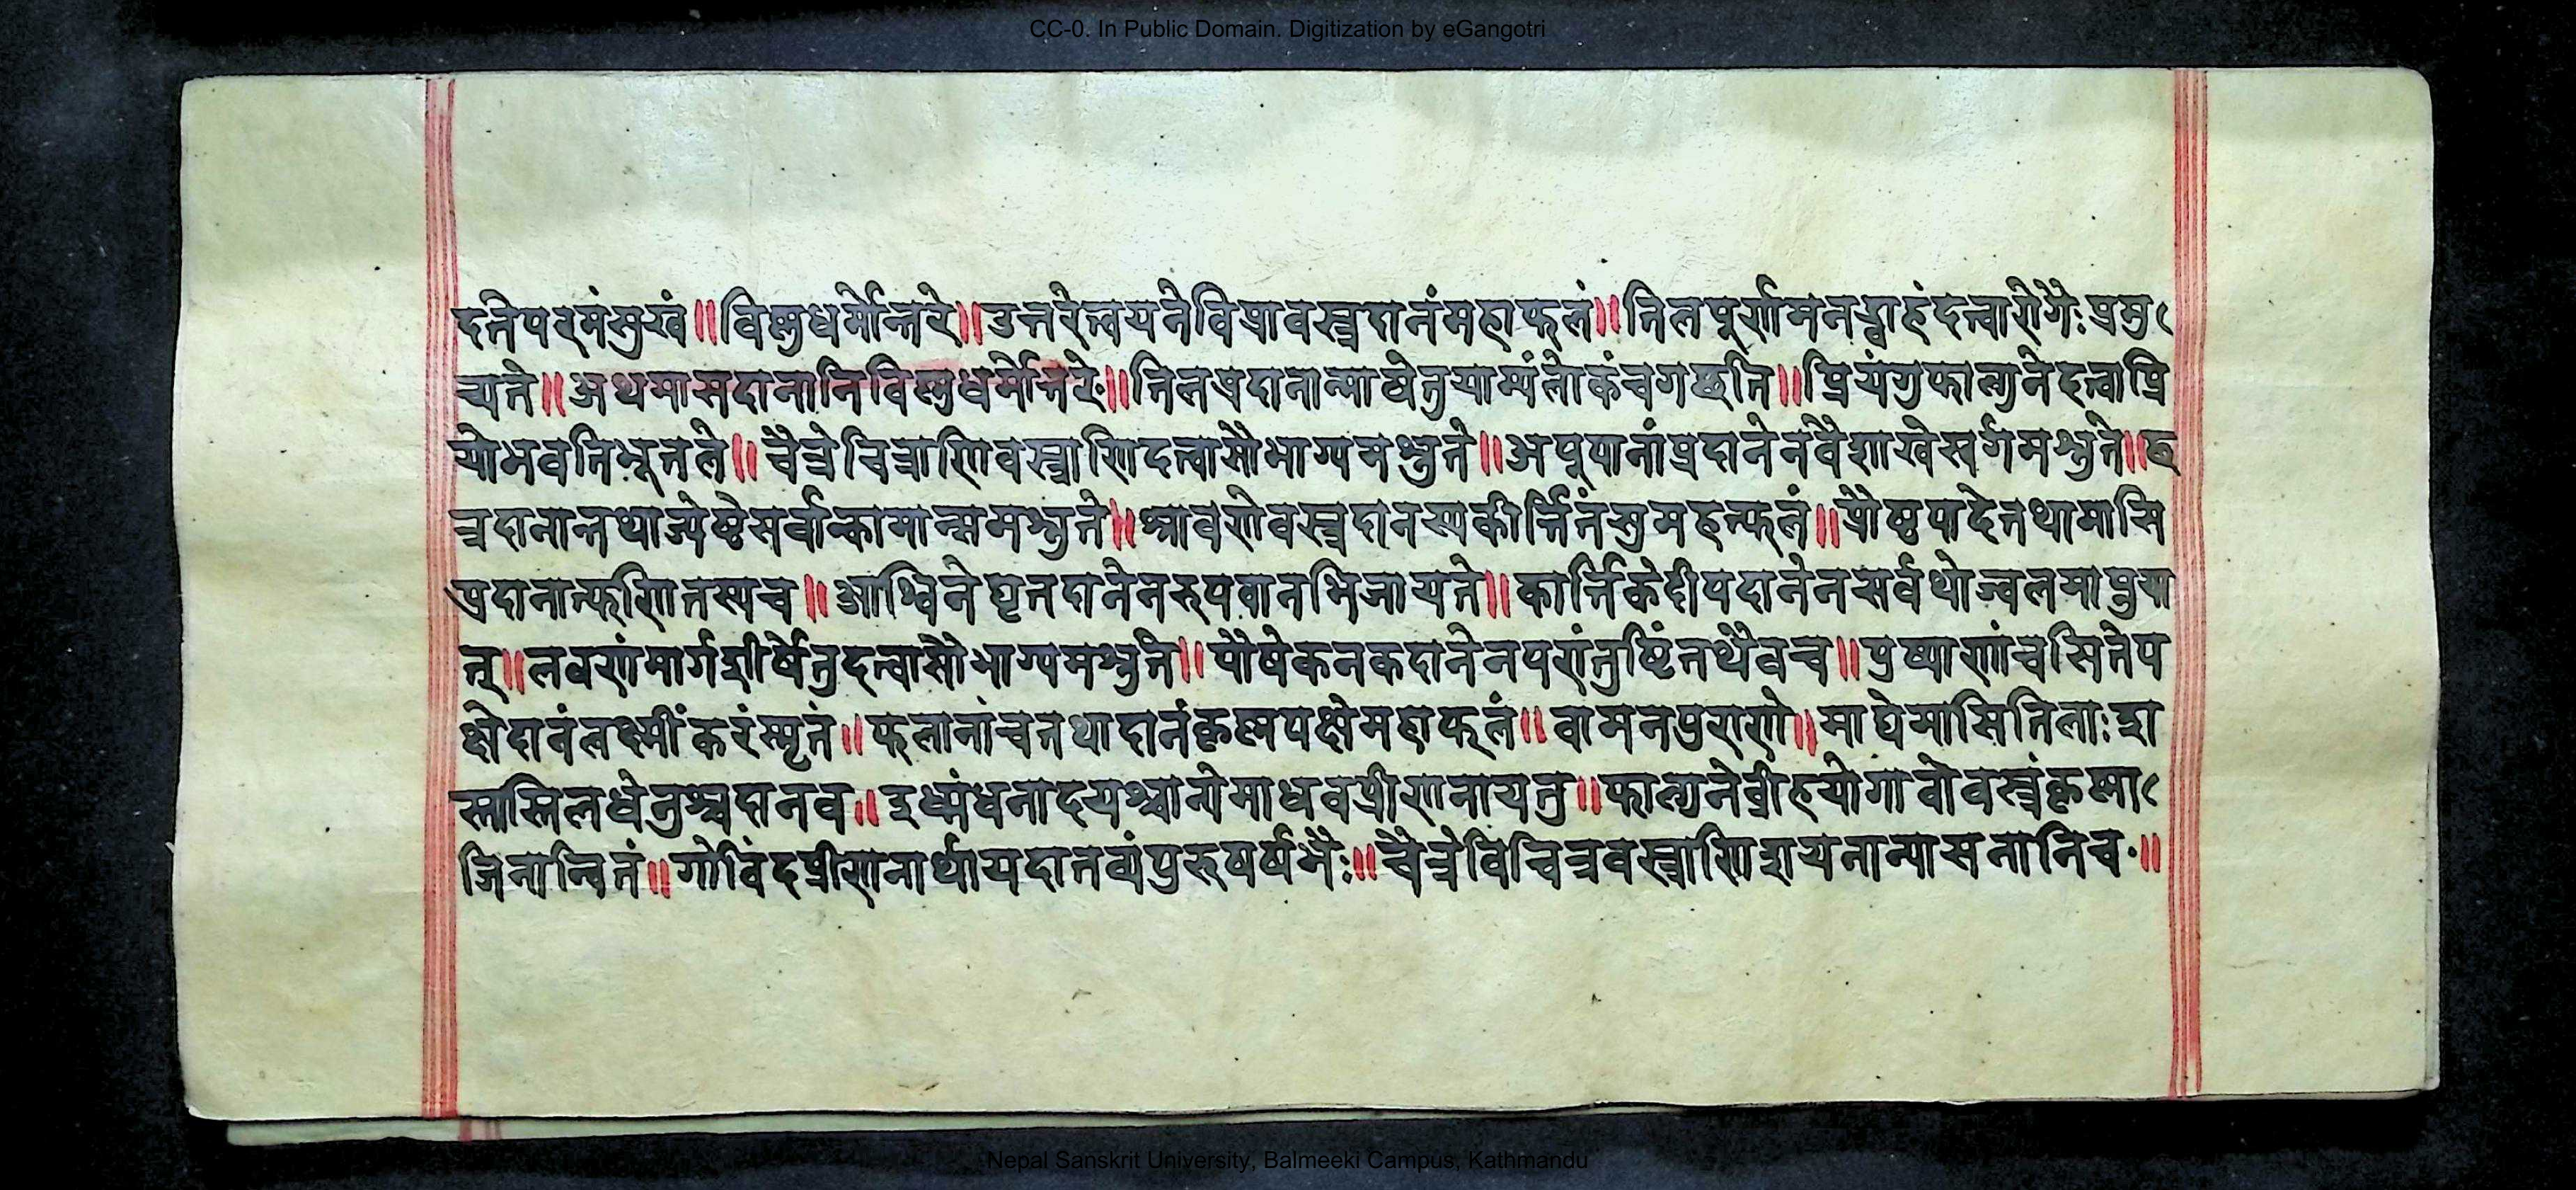 CC-0. In Public Domain. Digitization by eGangotri
दतेपरमंसुखं॥विष्णुधर्मोत्तरे॥उत्तरेत्वयनेविप्रावस्त्रदानंमहाफलं॥तिलपूर्णमनड्वाहंदत्वारोगैःप्रमु
च्यते॥अथमासदानानिविष्णुधर्मोत्तरे॥तिलप्रदानान्माघेतुयाम्यंलोकंचगच्छति॥प्रियंगुफाल्गुनेदत्वाप्रि
योभवतिभूतले॥चैत्रेचित्राणिवस्त्राणिदत्वासौभाग्यमश्नुते॥अपूपानांप्रदानेनवैशाखेस्वर्गमश्नुते॥छ
त्रदानात्तथाज्येष्ठेसर्वान्कामान्समश्नुते॥श्रावणेवस्त्रदानस्यकीर्त्तितंसुमहत्फलं॥प्रौष्ठपादेतथामासि
प्रदानात्फणितस्यच॥आश्विनेघृतदानेनरुपवानभिजायते॥कार्त्तिकेदीपदानेनसर्वथोज्वलमाप्नुया
त्॥लवणंमार्गशीर्षेतुदत्वासौभाग्यमश्नुते॥पौषेकनकदानेनपरांतुष्टिंतथैवच॥पुष्पाणांचसितेप
क्षेदानंलक्ष्मींकरंस्मृतं॥फलानांचतथादानंकृष्णपक्षेमहाफलं॥वामनपुराणे॥माघेमासितिलाःशा
स्तास्तिलधेनुश्चदानव॥इध्मंधनादयश्चान्येमाधवप्रीणनायतु॥फाल्गुनेव्रीहयोगावोवस्त्रंकृष्णा
जिनान्वितं॥गोविंदप्रीणनार्थायदातव्यंपुरूषर्षभैः॥चैत्रेविचित्रवस्त्राणिशयनान्यासनानिच॥
Nepal Sanskrit University, Balmeeki Campus, Kathmandu